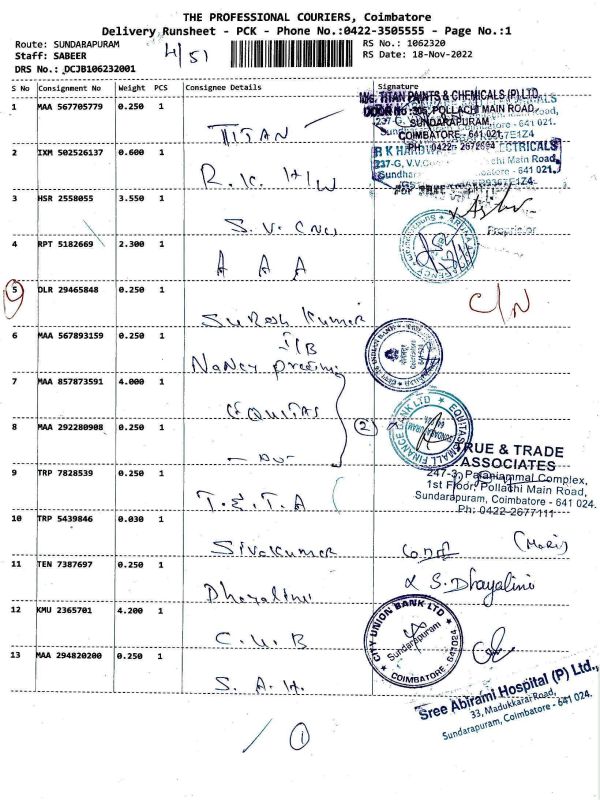 THE PROFESSIONAL COURIERS, Coimbatore
Delivery Runsheet - PCK - Phone No.:0422-3505555 - Page No.:1
Route: SUNDARAPURAM 4/51 RS No.: 1062320
Staff: SABEER RS Date: 18-Nov-2022
DRS No.: DCJB106232001
S No Consignment No Weight PCS Consignee Details Signature
1 MAA 567705779 0.250 1 TITAN
M/s. TITAN PAINTS & CHEMICALS (P) LTD
DOOR No : 306, POLLACHI MAIN ROAD,
SUNDARAPURAM,
COIMBATORE - 641 021.
PH : 0422 - 2672694
2 IXM 502526137 0.600 1 R.K. H/W
R K HARDWARE ELECTRICALS
237-G, V.V. Pollachi Main Road,
Coimbatore - 641 021.
3 HSR 2558055 3.550 1 S. V. CNU
Proprietor
4 RPT 5182669 2.300 1 A A A
5 DLR 29465848 0.250 1 Suresh Kumar C/N
6 MAA 567893159 0.250 1 I/B
Nancy
7 MAA 857873591 4.000 1 EQUITAS
EQUITAS SMALL FINANCE BANK LTD
SUNDARAPURAM
8 MAA 292280908 0.250 1 - Do - 2
9 TRP 7828539 0.250 1 T.E.T.A
TRUE & TRADE
ASSOCIATES
247-3, Palaniammal Complex,
1st Floor, Pollachi Main Road,
Sundarapuram, Coimbatore - 641 024.
Ph: 0422-2677111
10 TRP 5439846 0.030 1 Sivakumar
11 TEN 7387697 0.250 1 Dhayalini S. Dhayalini
12 KMU 2365701 4.200 1 C.U.B
CITY UNION BANK LTD
Sundarapuram
COIMBATORE 641024
13 MAA 294820200 0.250 1 S. A. H.
Sree Abirami Hospital (P) Ltd.,
33, Madukkarai Road,
Sundarapuram, Coimbatore - 641 024.
1